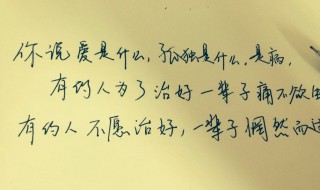 你说爱是什么,孤独是什么,是病,
有的人为了治好一辈子痛不欲生
有的人不愿治好,一辈子惘然而过